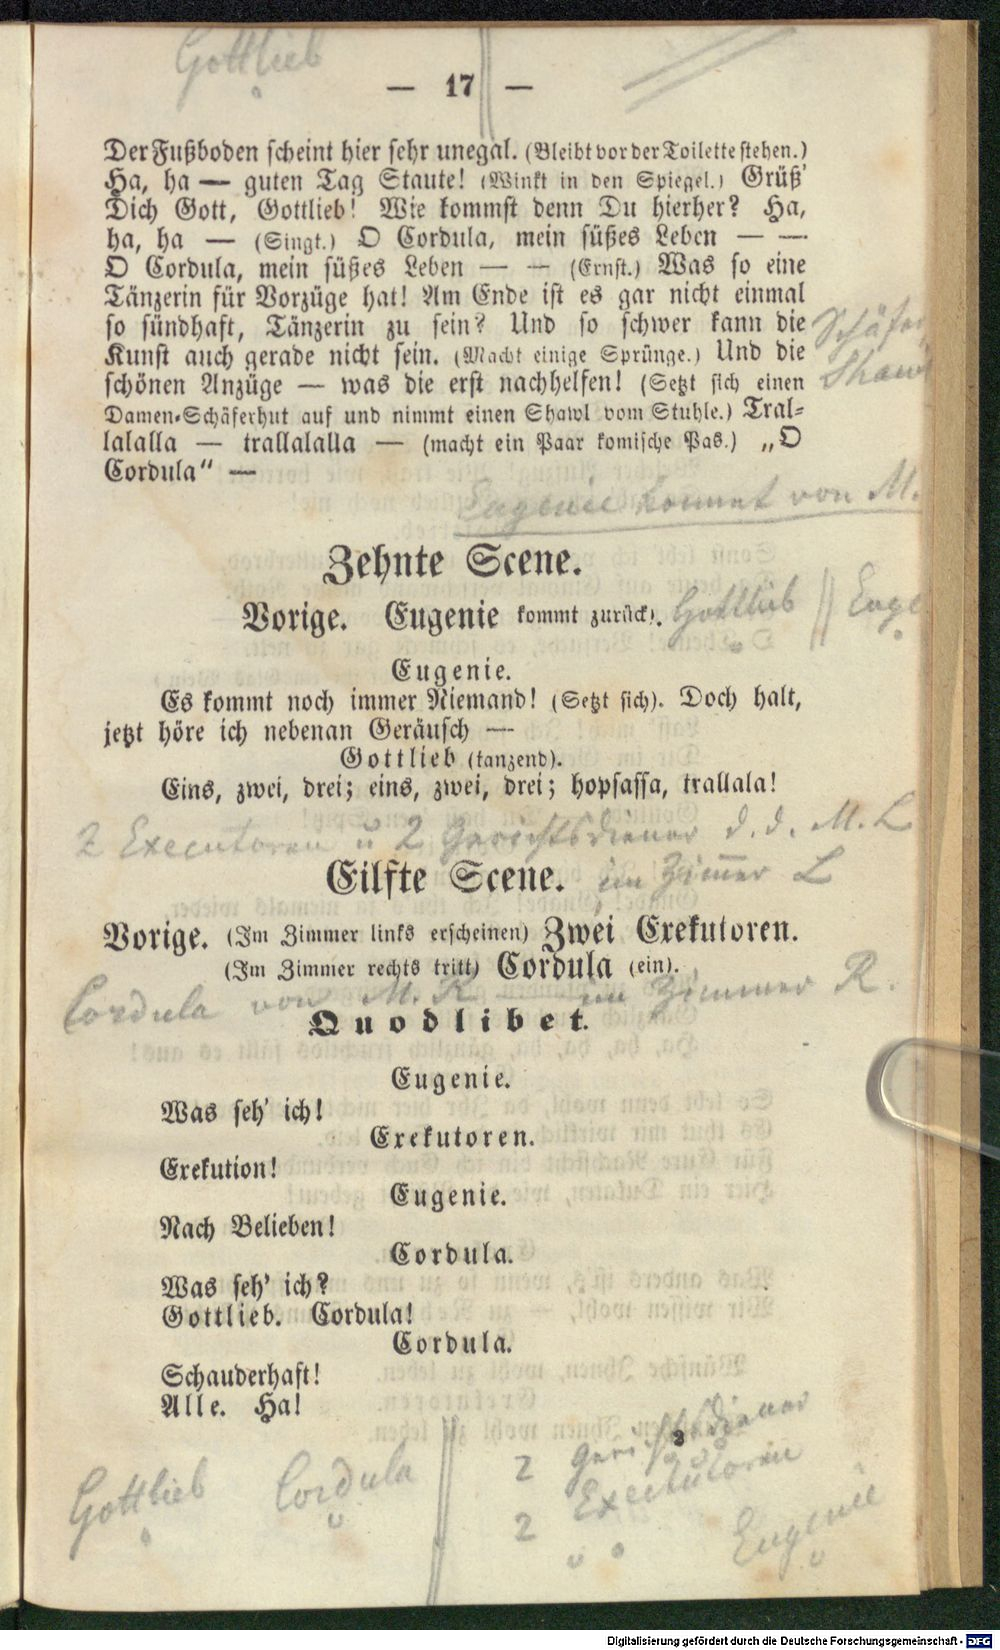 Gottlieb
— 17 —
Der Fußboden scheint hier sehr unegal. (Bleibt vor der Toilette stehen.)
Ha, ha — guten Tag Staute! (Winkt in den Spiegel.) Grüß'
Dich Gott, Gottlieb! Wie kommst denn Du hierher? Ha,
ha, ha — (Singt.) O Cordula, mein süßes Leben — —
O Cordula, mein süßes Leben — — (Ernst.) Was so eine
Tänzerin für Vorzüge hat! Am Ende ist es gar nicht einmal
so sündhaft, Tänzerin zu sein? Und so schwer kann die
Kunst auch gerade nicht sein. (Macht einige Sprünge.) Und die
schönen Anzüge — was die erst nachhelfen! (Setzt sich einen
Damen-Schäferhut auf und nimmt einen Shawl vom Stuhle.) Tral-
lalalla — trallalalla — (macht ein Paar komische Pas.) „O
Cordula" —
Schäfer
Shawl
Eugenie kommt von M.
Zehnte Scene.
Vorige. Eugenie kommt zurück).
Gottlieb // Euge
Eugenie.
Es kommt noch immer Niemand! (Setzt sich). Doch halt,
jetzt höre ich nebenan Geräusch —
Gottlieb (tanzend).
Eins, zwei, drei; eins, zwei, drei; hopsassa, trallala!
2 Executoren u 2 Gerichtsdiener d. d. M. L
Eilfte Scene.
im Zimmer L
Vorige. (Im Zimmer links erscheinen) Zwei Exekutoren.
(Im Zimmer rechts tritt) Cordula (ein).
Cordula von M. R — im Zimmer R.
Quodlibet.
Eugenie.
Was seh' ich!
Exekutoren.
Exekution!
Eugenie.
Nach Belieben!
Cordula.
Was seh' ich?
Gottlieb. Cordula!
Cordula.
Schauderhaft!
Alle. Ha!
Gottlieb Cordula
2 Gerichtsdiener
2 Executoren
Eugenie
Digitalisierung gefördert durch die Deutsche Forschungsgemeinschaft - DFG